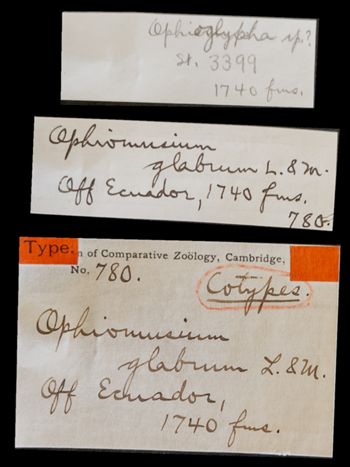 Ophioglypha sp?
St. 3399
1740 fms.
Ophiomusium
glabrum L. & M.
Off Ecuador, 1740 fms.
780.
Type.
m of Comparative Zoölogy, Cambridge,
No. 780.
Cotypes.
Ophiomusium
glabrum L. & M.
Off Ecuador,
1740 fms.